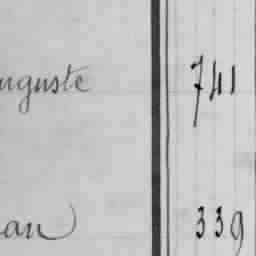 uguste 741
an 339